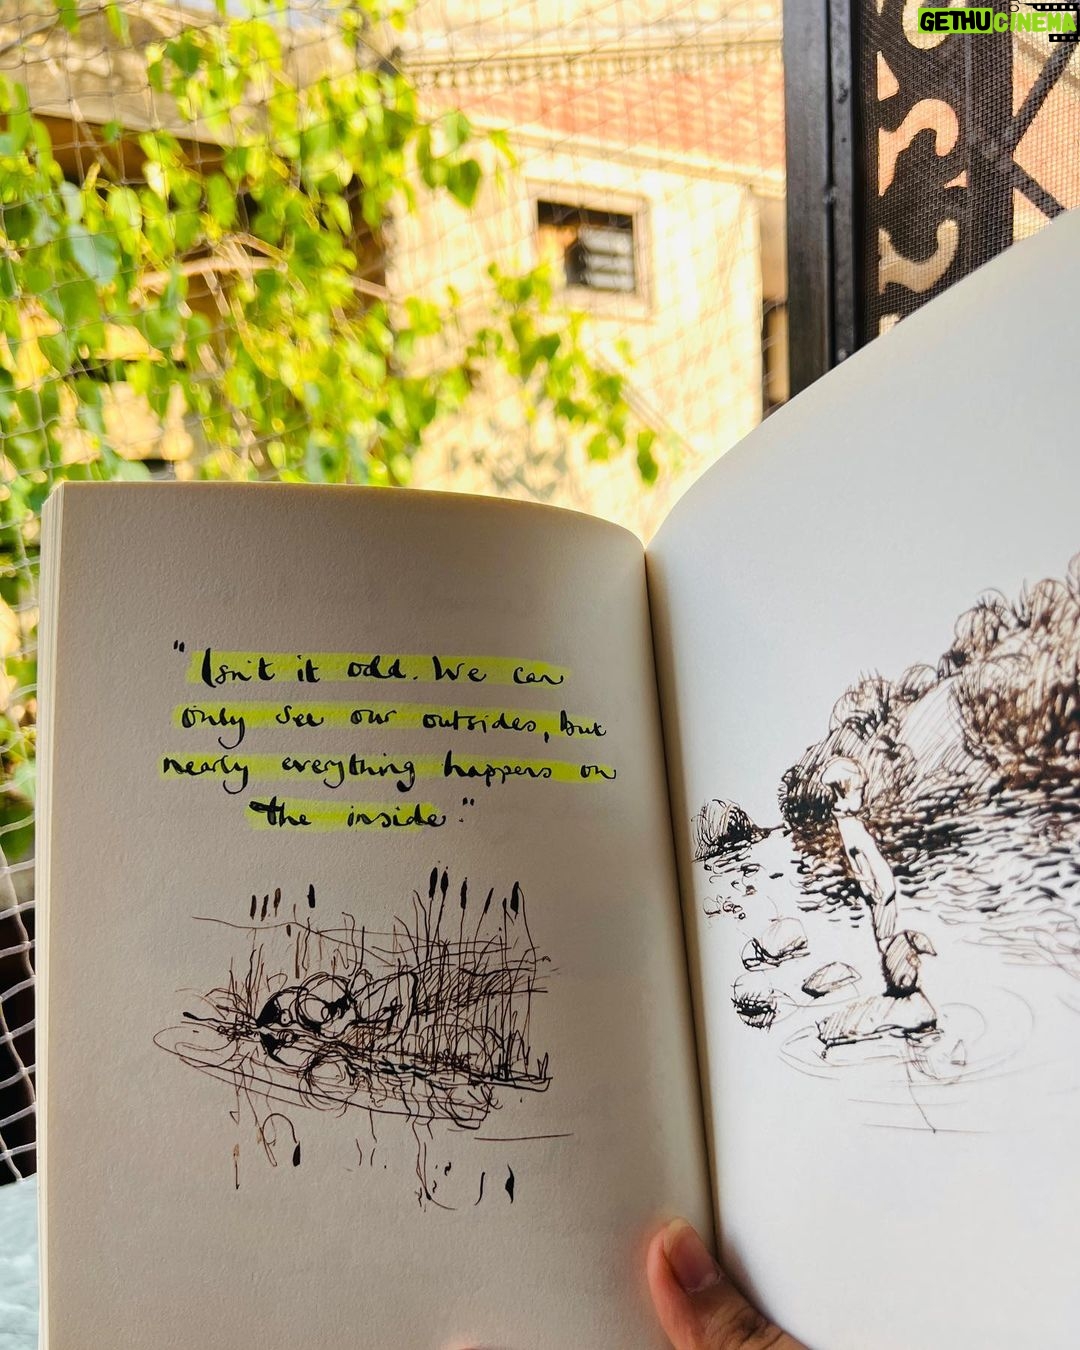 GETHUCINEMA
"Isn't it odd. We can
only see our outsides, but
nearly everything happens on
the inside."